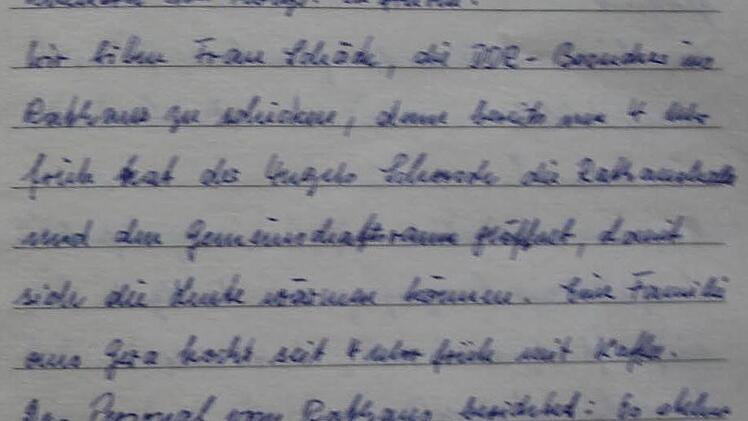 wir bitten Frau Schäde, die DDR-Besucher ins
Rathaus zu schicken, denn bereits um 4 Uhr
früh hat der die Rathaushalle
und den Gemeinschaftsraum geöffnet, damit
sich die Leute wärmen können. Eine Familie
aus Gera hockt seit 4 Uhr früh mit Kaffee.
Personal vom Rathaus berichtet: Es stehen